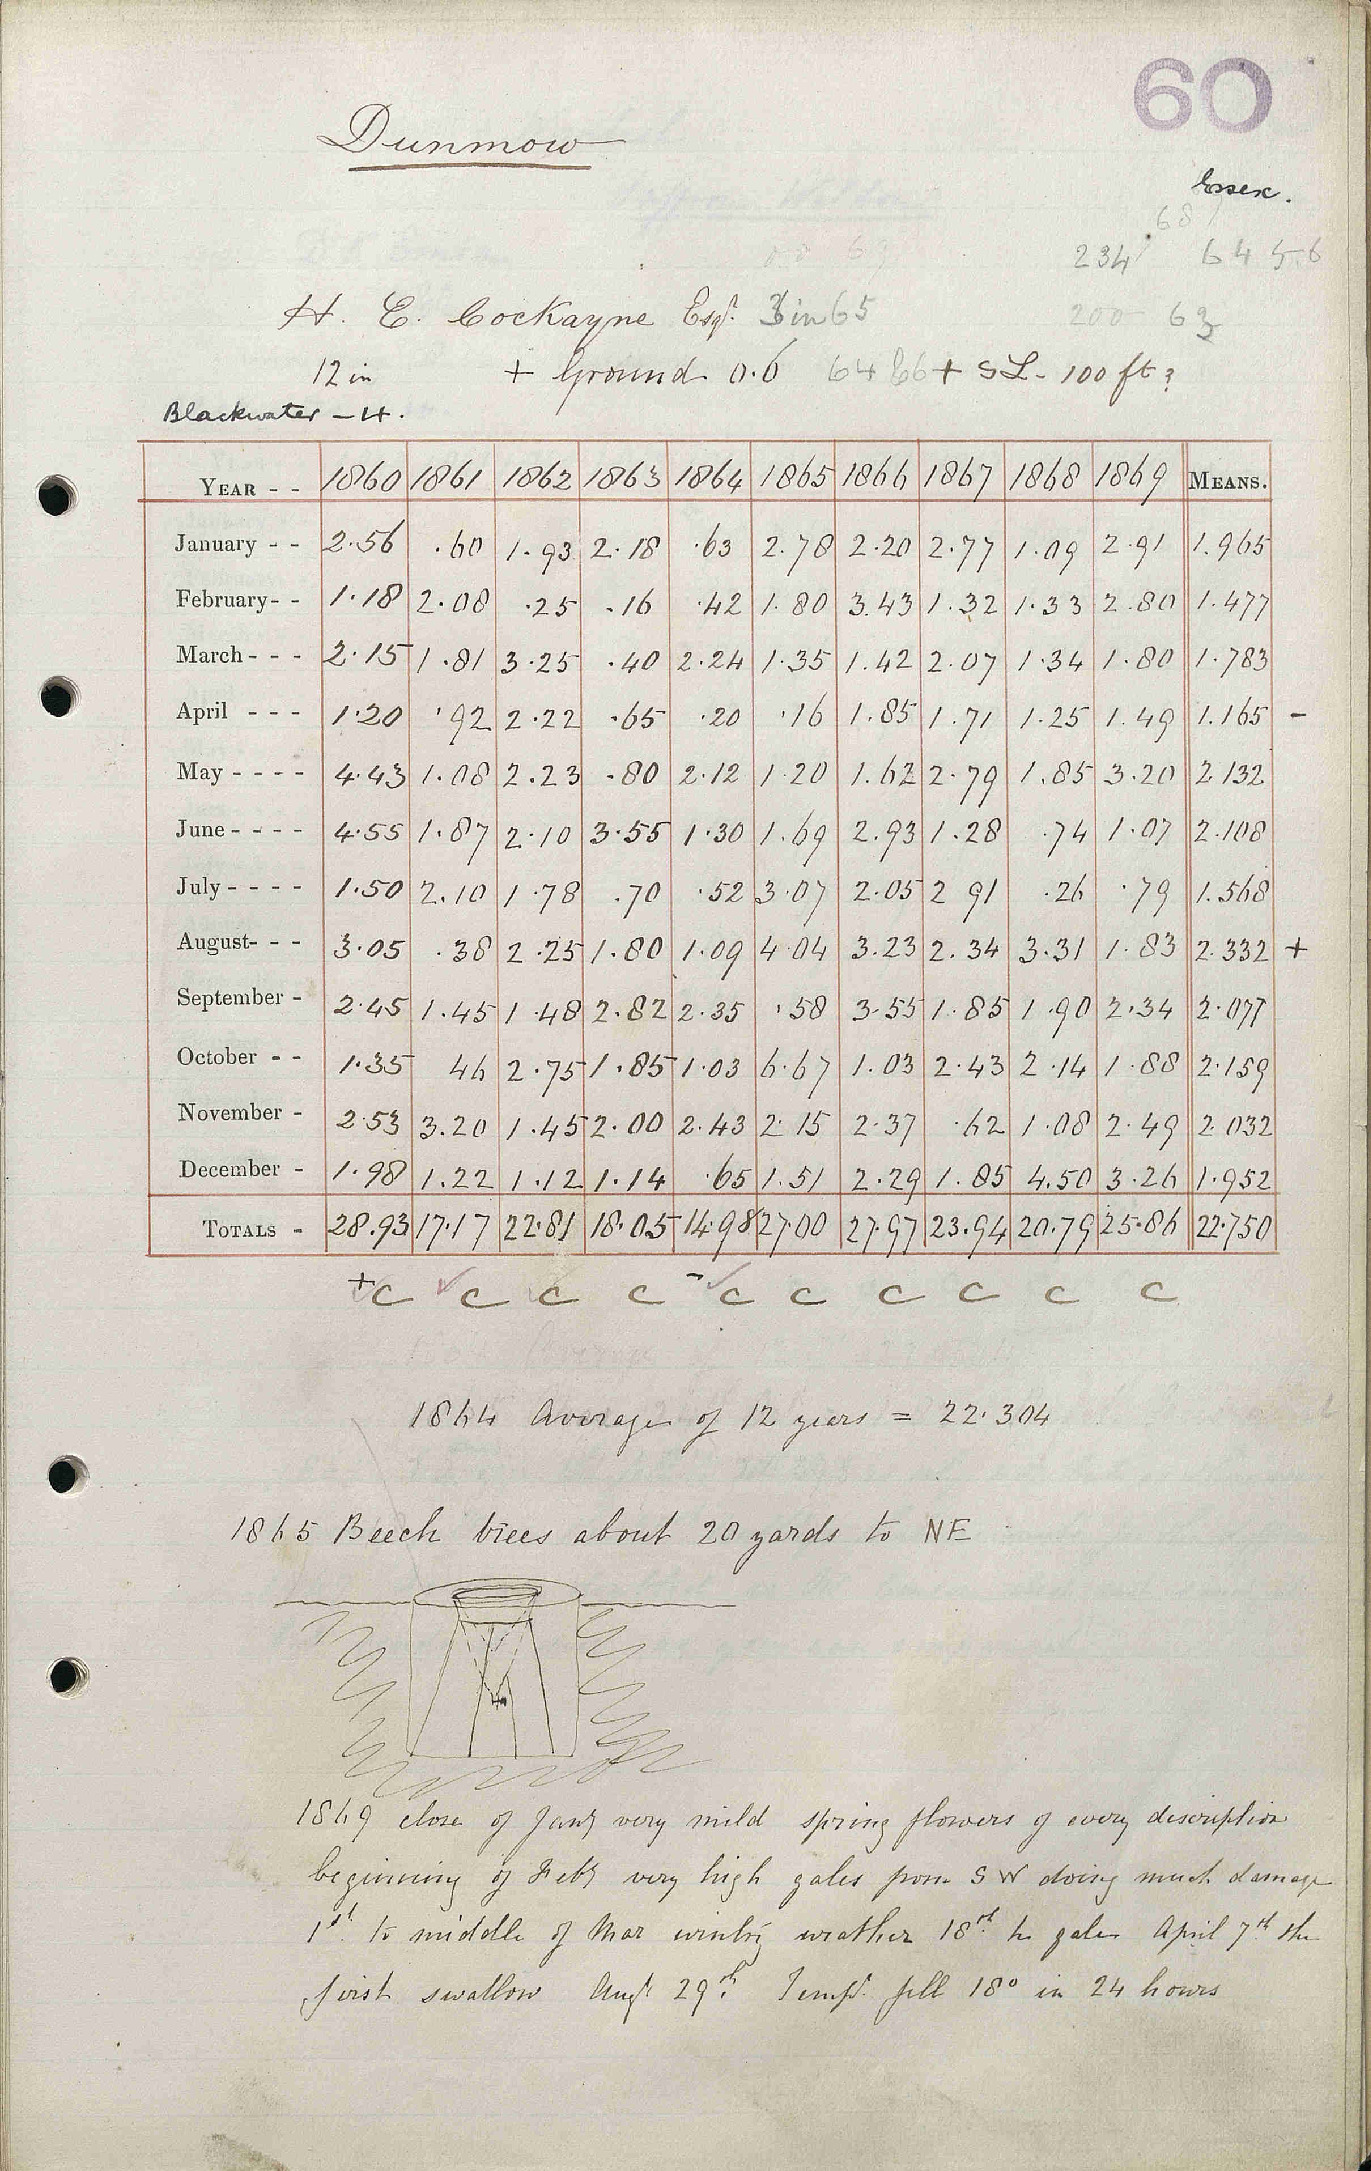 60
Dunmow
Essex.
68
234 64 5.6
H. E. Cockayne Esqr. 3 in 65 200 63
12 in + Ground 0.6 64 66 + SL - 100 ft ?
Blackwater - H.
YEAR - - 1860 1861 1862 1863 1864 1865 1866 1867 1868 1869 MEANS.
January - - 2.56 .60 1.93 2.18 .63 2.78 2.20 2.77 1.09 2.91 1.965
February - - 1.18 2.08 .25 .16 .42 1.80 3.43 1.32 1.33 2.80 1.477
March - - - 2.15 1.81 3.25 .40 2.24 1.35 1.42 2.07 1.34 1.80 1.783
April - - - 1.20 .92 2.22 .65 .20 .16 1.85 1.71 1.25 1.49 1.165 -
May - - - - 4.43 1.08 2.23 .80 2.12 1.20 1.62 2.79 1.85 3.20 2.132
June - - - - 4.55 1.87 2.10 3.55 1.30 1.69 2.93 1.28 .74 1.07 2.108
July - - - - 1.50 2.10 1.78 .70 .52 3.07 2.05 2 91 .26 .79 1.568
August - - - 3.05 .38 2.25 1.80 1.09 4.04 3.23 2.34 3.31 1.83 2.332 +
September - 2.45 1.45 1.48 2.82 2.35 .58 3.55 1.85 1.90 2.34 2.077
October - - 1.35 46 2.75 1.85 1.03 6.67 1.03 2.43 2.14 1.88 2.159
November - 2.53 3.20 1.45 2.00 2.43 2.15 2.37 .62 1.08 2.49 2.032
December - 1.98 1.22 1.12 1.14 .65 1.51 2.29 1.85 4.50 3.26 1.952
TOTALS - 28.93 17.17 22.81 18.05 14.98 27.00 27.97 23.94 20.79 25.86 22.750
+ C C C C - C C C C C C
1864 Average of 12 years = 22.304
1865 Beech trees about 20 yards to NE
1869 close of Jany very mild spring flowers of every description
beginning of Feby very high gales from SW doing much damage
1st to middle of Mar wintry weather 18th hy gales April 7th the
first swallow Augt 29th Tempr. fell 18° in 24 hours